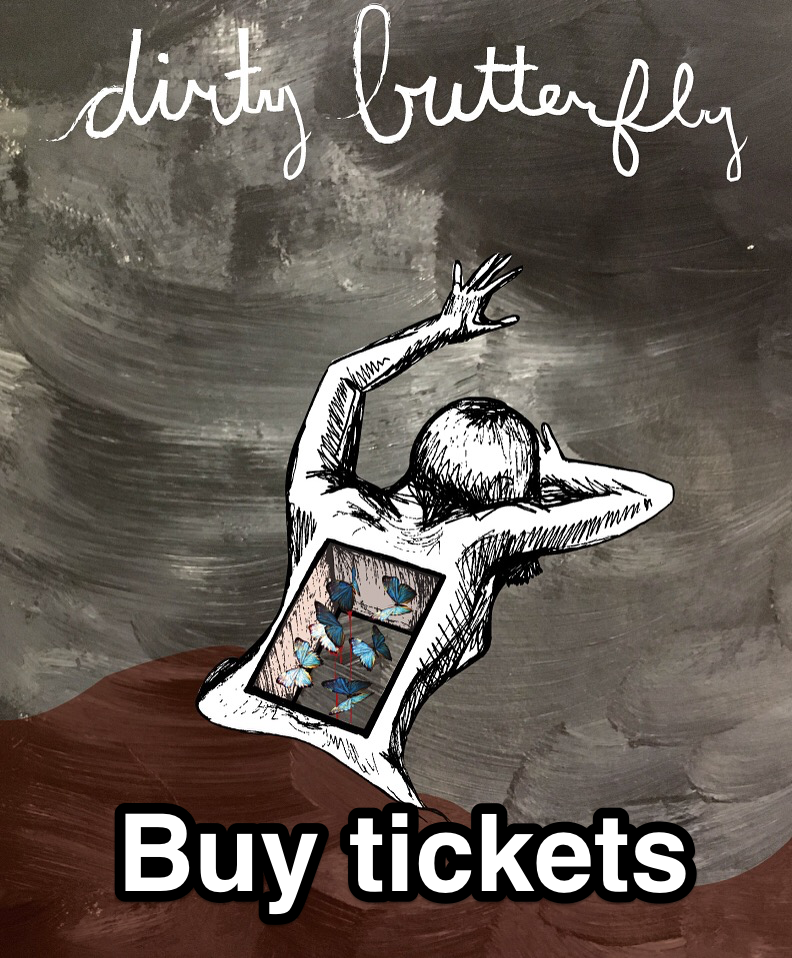 dirty butterfly
Buy tickets